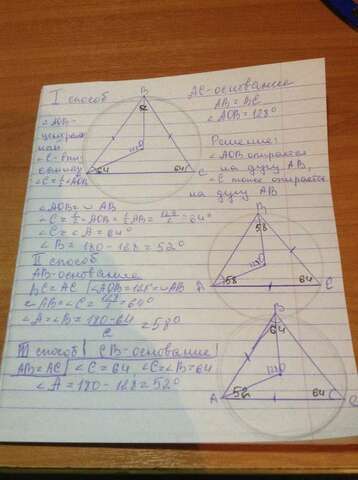 I способ
AC-основание
AB = BC
∠AOB = 128°
∠AOB-
централь
ный
∠C-впи
санный
∠C = ½∠AOB
B
C
64
64
Решение:
∠AOB опирается
на дугу AB,
∠C тоже опирается
на дугу AB
∠AOB = ∪AB
∠C = ½∠AOB = ½AB = 128/2 = 64°
∠C = ∠A = 64°
∠B = 180-128 = 52°
II способ
AB-основание
BC = AC ∠AOB = 128° = ∪AB
∠C = 128/2 = 64°
∠A = ∠B = 180-64/2 = 58°
B
58
A
58
64
C
III способ CB-основание
AB = AC ∠C = 64 ∠C = ∠B = 64
∠A = 180-128 = 52°
B
64
A
52
64
C